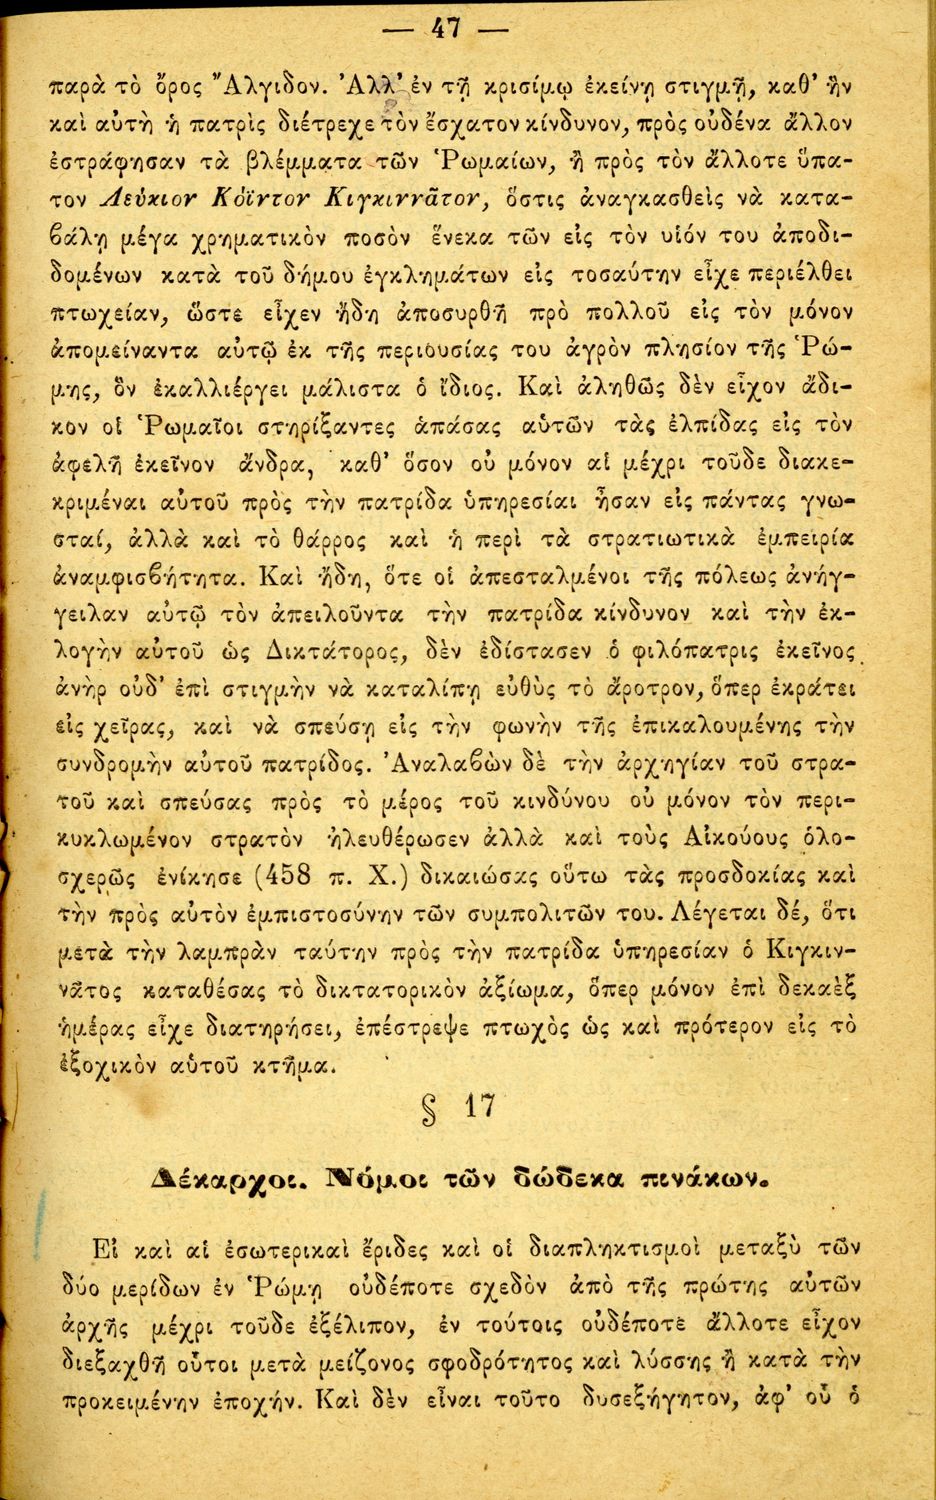 — 47 —
παρὰ τὸ ὄρος Ἄλγιδον. Ἀλλ’ ἐν τῇ κρισίμῳ ἐκείνῃ στιγμῇ, καθ’ ἣν
καὶ αὐτὴ ἡ πατρὶς διέτρεχε τὸν ἔσχατον κίνδυνον, πρὸς οὐδένα ἄλλον
ἐστράφησαν τὰ βλέμματα τῶν Ῥωμαίων, ἢ πρὸς τὸν ἄλλοτε ὕπα-
τον Λεύκιον Κόϊντον Κιγκιννᾶτον, ὅστις ἀναγκασθεὶς νὰ κατα-
ϐάλῃ μέγα χρηματικὸν ποσὸν ἕνεκα τῶν εἰς τὸν υἱόν του ἀποδι-
δομένων κατὰ τοῦ δήμου ἐγκλημάτων εἰς τοσαύτην εἶχε περιέλθει
πτωχείαν, ὥστε εἶχεν ἤδη ἀποσυρθῆ πρὸ πολλοῦ εἰς τὸν μόνον
ἀπομείναντα αὐτῷ ἐκ τῆς περιουσίας του ἀγρὸν πλησίον τῆς Ῥώ-
μης, ὃν ἐκαλλιέργει μάλιστα ὁ ἴδιος. Καὶ ἀληθῶς δὲν εἶχον ἄδι-
κον οἱ Ῥωμαῖοι στηρίξαντες ἁπάσας αὑτῶν τὰς ἐλπίδας εἰς τὸν
ἀφελῆ ἐκεῖνον ἄνδρα, καθ’ ὅσον οὐ μόνον αἱ μέχρι τοῦδε διακε-
κριμέναι αὐτοῦ πρὸς τὴν πατρίδα ὑπηρεσίαι ἦσαν εἰς πάντας γνω-
σταί, ἀλλὰ καὶ τὸ θάρρος καὶ ἡ περὶ τὰ στρατιωτικὰ ἐμπειρία
ἀναμφισϐήτητα. Καὶ ἤδη, ὅτε οἱ ἀπεσταλμένοι τῆς πόλεως ἀνήγ-
γειλαν αὐτῷ τὸν ἀπειλοῦντα τὴν πατρίδα κίνδυνον καὶ τὴν ἐκ-
λογὴν αὐτοῦ ὡς Δικτάτορος, δὲν ἐδίστασεν ὁ φιλόπατρις ἐκεῖνος
ἀνὴρ οὐδ’ ἐπὶ στιγμὴν νὰ καταλίπῃ εὐθὺς τὸ ἄροτρον, ὅπερ ἐκράτει
εἰς χεῖρας, καὶ νὰ σπεύσῃ εἰς τὴν φωνὴν τῆς ἐπικαλουμένης τὴν
συνδρομὴν αὐτοῦ πατρίδος. Ἀναλαϐὼν δὲ τὴν ἀρχηγίαν τοῦ στρα-
τοῦ καὶ σπεύσας πρὸς τὸ μέρος τοῦ κινδύνου οὐ μόνον τὸν περι-
κυκλωμένον στρατὸν ἠλευθέρωσεν ἀλλὰ καὶ τοὺς Αἰκούους ὁλο-
σχερῶς ἐνίκησε (458 π. Χ.) δικαιώσας οὕτω τὰς προσδοκίας καὶ
τὴν πρὸς αὐτὸν ἐμπιστοσύνην τῶν συμπολιτῶν του. Λέγεται δέ, ὅτι
μετὰ τὴν λαμπρὰν ταύτην πρὸς τὴν πατρίδα ὑπηρεσίαν ὁ Κιγκιν-
νᾶτος καταθέσας τὸ δικτατορικὸν ἀξίωμα, ὅπερ μόνον ἐπὶ δεκαὲξ
ἡμέρας εἶχε διατηρήσει, ἐπέστρεψε πτωχὸς ὡς καὶ πρότερον εἰς τὸ
ἐξοχικὸν αὑτοῦ κτῆμα.
§ 17
Δέκαρχοι. Νόμοι τῶν δώδεκα πινάκων.
Εἰ καὶ αἱ ἐσωτερικαὶ ἔριδες καὶ οἱ διαπληκτισμοὶ μεταξὺ τῶν
δύο μερίδων ἐν Ῥώμῃ οὐδέποτε σχεδὸν ἀπὸ τῆς πρώτης αὐτῶν
ἀρχῆς μέχρι τοῦδε ἐξέλιπον, ἐν τούτοις οὐδέποτε ἄλλοτε εἶχον
διεξαχθῆ οὗτοι μετὰ μείζονος σφοδρότητος καὶ λύσσης ἢ κατὰ τὴν
προκειμένην ἐποχήν. Καὶ δὲν εἶναι τοῦτο δυσεξήγητον, ἀφ’ οὗ ὁ